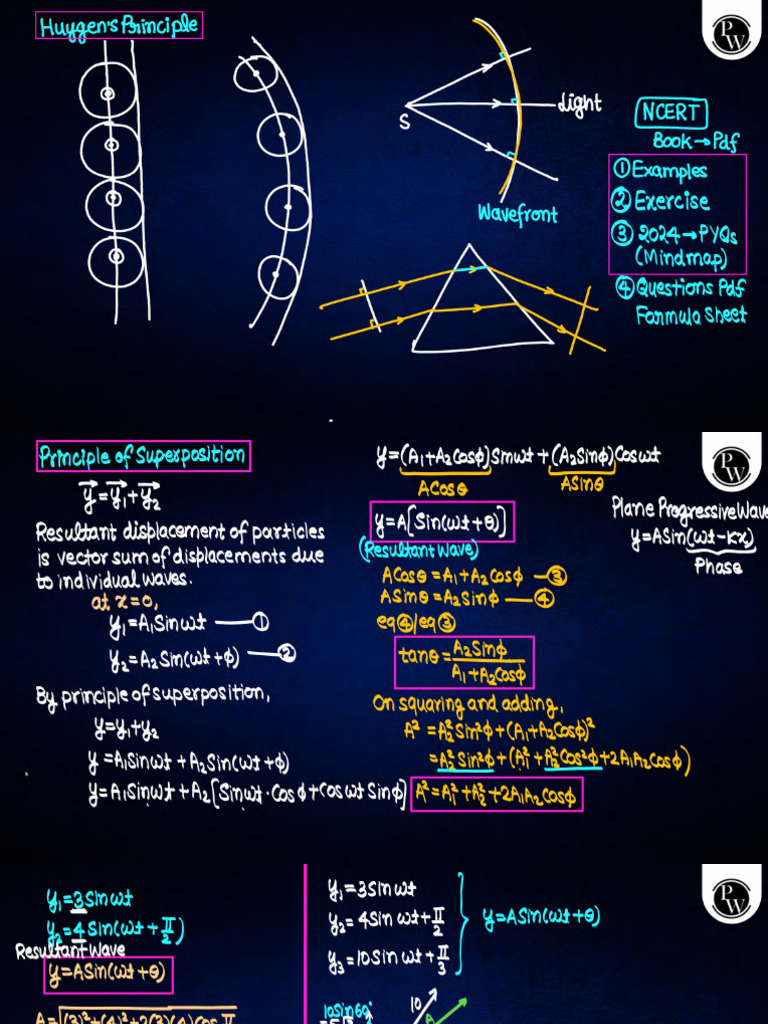 Huygen's Principle
PW
S
Light
Wavefront
NCERT
Book→Pdf
① Examples
② Exercise
③ 2024→PYQs
(Mindmap)
④ Questions Pdf
Formula Sheet
Principle of Superposition
y⃗ = y⃗₁ + y⃗₂
Resultant displacement of particles
is vector sum of displacements due
to individual waves.
at x=0,
y₁=A₁Sinωt —①
y₂=A₂Sin(ωt+ϕ) —②
By principle of superposition,
y=y₁+y₂
y=A₁Sinωt+A₂Sin(ωt+ϕ)
y=A₁Sinωt+A₂[Sinωt·Cosϕ+CosωtSinϕ]
y=(A₁+A₂Cosϕ)Sinωt+(A₂Sinϕ)Cosωt
ACosθ
ASinθ
y=A[Sin(ωt+θ)]
(Resultant wave)
ACosθ=A₁+A₂Cosϕ —③
ASinθ=A₂Sinϕ —④
eq④/eq③
tanθ=A₂Sinϕ/A₁+A₂Cosϕ
On squaring and adding,
A²=A₂²Sin²ϕ+(A₁+A₂Cosϕ)²
=A₂²Sin²ϕ+(A₁²+A₂²Cos²ϕ+2A₁A₂Cosϕ)
A²=A₁²+A₂²+2A₁A₂Cosϕ
PW
Plane Progressive Wave
y=ASin(ωt-kx)
Phase
y₁=3Sinωt
y₂=4Sin(ωt+π/2)
Resultant wave
y=ASin(ωt+θ)
A=√(3)²+(4)²+2(3)(4)Cosπ
y₁=3Sinωt
y₂=4Sin ωt+π/2
y₃=10Sin ωt+π/3
y=ASin(ωt+θ)
PW
10Sin60°
10
A